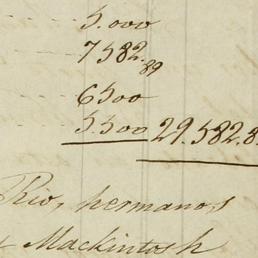 5.000
7582.89
6500
5.500 29.582.8
Rio, hermanos
Mackintosh